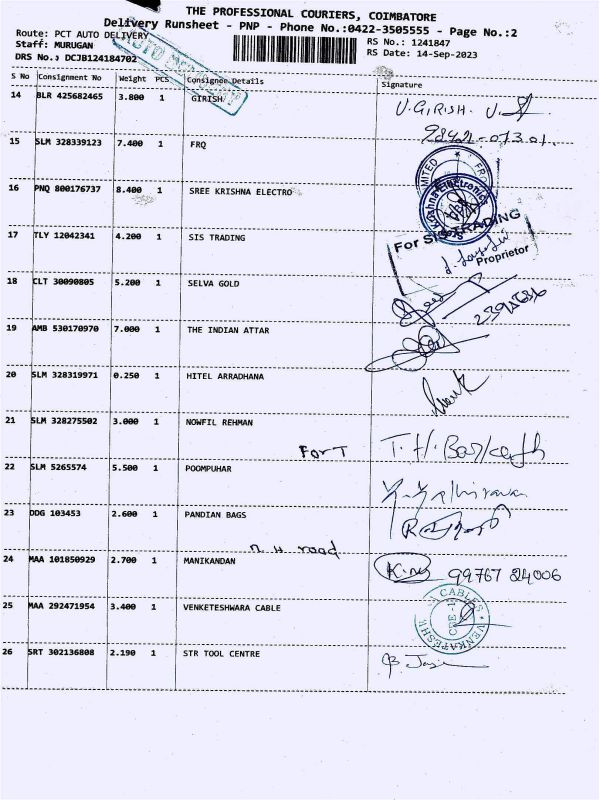 THE PROFESSIONAL COURIERS, COIMBATORE
Delivery Runsheet - PNP - Phone No.:0422-3505555 - Page No.:2
Route: PCT AUTO DELIVERY
Staff: MURUGAN
DRS No.: DCJB124184702
RS No.: 1241847
RS Date: 14-Sep-2023
AUTO
S No Consignment No Weight PCS Consignee Details Signature
14 BLR 425682465 3.800 1 GIRISH U.GIRISH.
15 SLM 328339123 7.400 1 FRQ
16 PNQ 800176737 8.400 1 SREE KRISHNA ELECTRO
17 TLY 12042341 4.200 1 SIS TRADING
For SIS TRADING
Proprietor
18 CLT 30090805 5.200 1 SELVA GOLD
19 AMB 530170970 7.000 1 THE INDIAN ATTAR
20 SLM 328319971 0.250 1 HITEL ARRADHANA
21 SLM 328275502 3.000 1 NOWFIL REHMAN
For T
22 SLM 5265574 5.500 1 POOMPUHAR
23 DDG 103453 2.600 1 PANDIAN BAGS
n H road
24 MAA 101850929 2.700 1 MANIKANDAN 99767 24006
25 MAA 292471954 3.400 1 VENKETESHWARA CABLE
CABLES
26 SRT 302136808 2.190 1 STR TOOL CENTRE